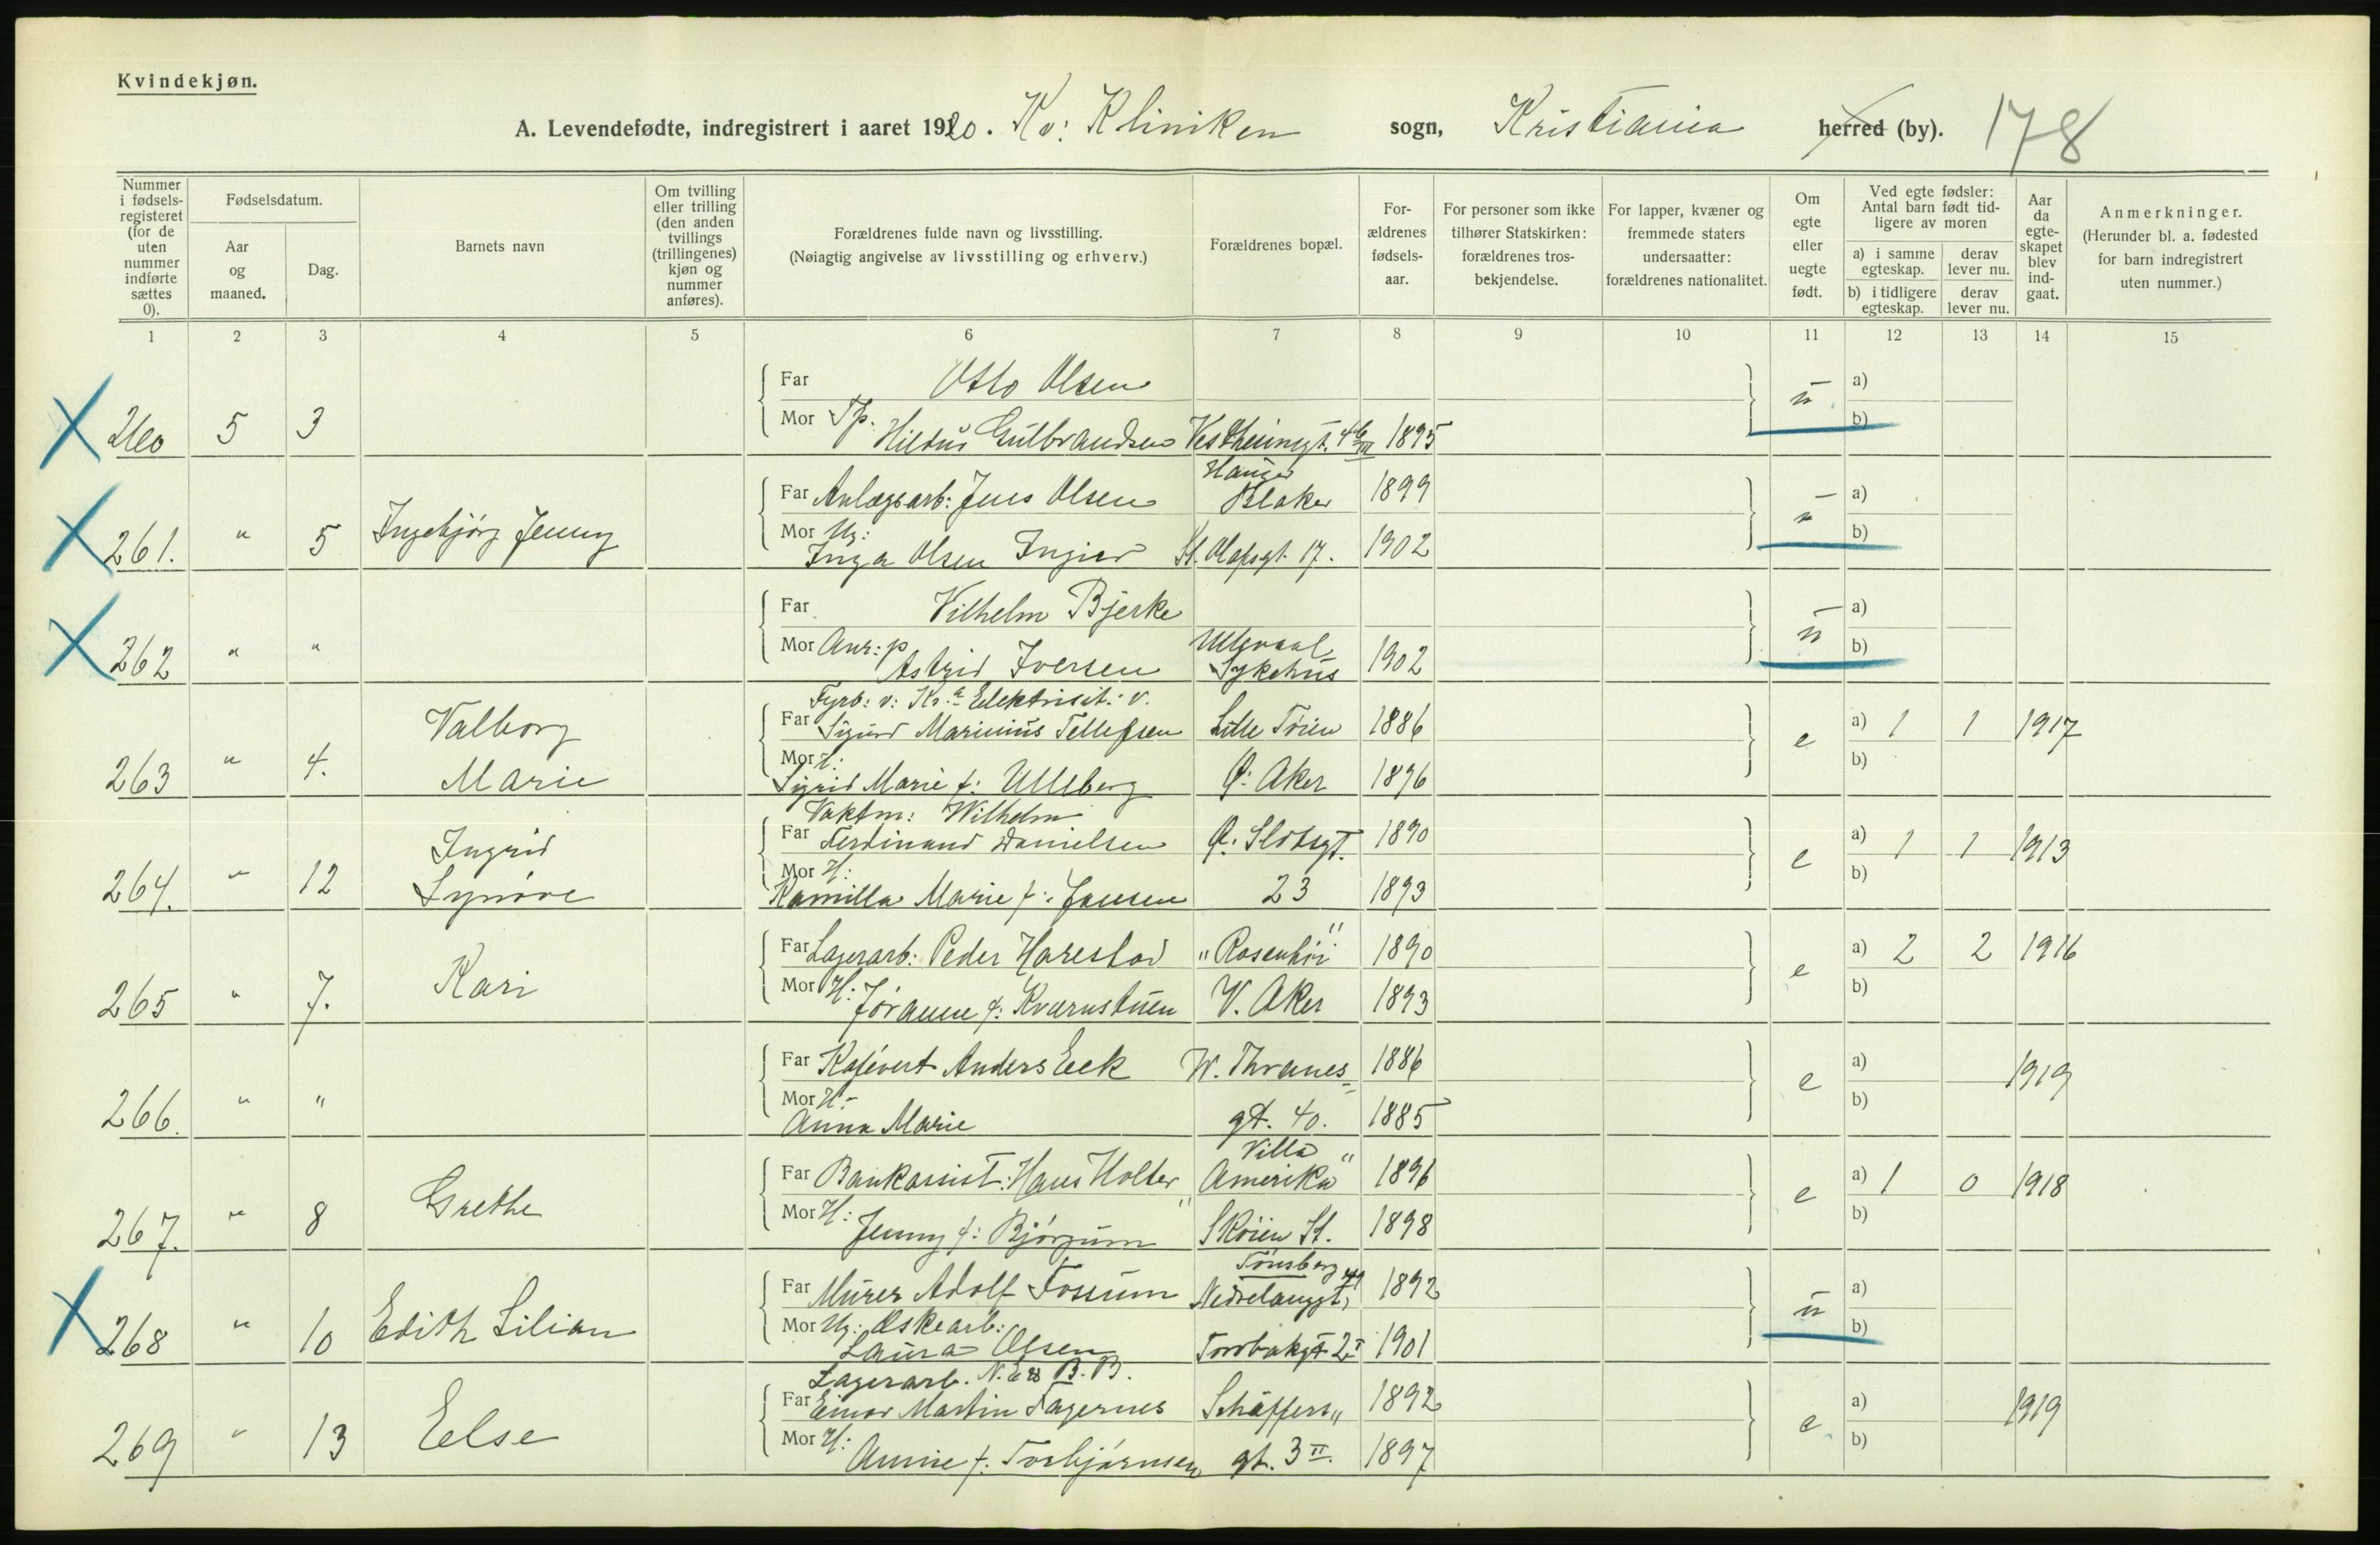 Kvindekjøn.
A. Levendefødte, indregistrert i aaret 1920. Kv: Kliniken sogn, Kristiania herred (by). 178
Nummer i fødsels-registeret (for de uten nummer indførte sættes 0).
Fødselsdatum.
Aar og maaned.
Dag.
Barnets navn
Om tvilling eller trilling (den anden tvillings (trillingenes) kjøn og nummer anføres).
Forældrenes fulde navn og livsstilling.
(Nøiagtig angivelse av livsstilling og erhverv.)
Forældrenes bopæl.
For-ældrenes fødsels-aar.
For personer som ikke tilhører Statskirken: forældrenes tros-bekjendelse.
For lapper, kvæner og fremmede staters undersaatter: forældrenes nationalitet.
Om egte eller uegte født.
Ved egte fødsler: Antal barn født tid-ligere av moren
a) i samme egteskap.
derav lever nu.
b) i tidligere egteskap.
derav lever nu.
Aar da egte-skapet blev ind-gaat.
Anmerkninger.
(Herunder bl. a. fødested for barn indregistrert uten nummer.)
1 2 3 4 5 6 7 8 9 10 11 12 13 14 15
Far Otto Olsen a)
260 5 3 Mor Tp. Hildur Gulbrandsen 1895 u b)
Hauger
Far Anlægsarb: Jens Olsen Blaker 1899 a)
261. " 5 Ingebjørg Jenny Mor Ug: Inga Olsen Ingier St. Olafsgt. 17. 1902 u b)
Far Vilhelm Bjerke a)
262 " " Mor Astrid Iversen Ullevaal Sykehus 1902 u b)
Fyrb: v: Kr.a Elektrisit: v.
Far Sigurd Marinius Tellefsen Lille Tøien 1886 a) 1 1 1917
263 " 4. Valborg Marie Mor H: Sigrid Marie f: Ulleberg Ø: Aker 1896 e b)
Vaktm: Wilhelm
Far Ferdinand Danielsen Ø. Slotsgt. 1890 a) 1 1 1913
264. " 12 Ingrid Synøve Mor H: Kamilla Marie f: Jansen 23 1893 e b)
Far Lagerarb: Peder Harestad "Rosenhøi" 1890 a) 2 2 1916
265 " 7. Kari Mor H: Jøranne f: Kvarnstuen V. Aker 1893 e b)
Far Anders Eek W. Thranes- 1886 a) 1919
266. " " Mor H: Anna Marie gt. 40. 1885 e b)
Villa
Far Bankassist: Hans Holter "Amerika" 1896 a) 1 0 1918
267. " 8 Grethe Mor H: Jenny f: Bjørgum Skøien St. 1898 e b)
Tønsberg
Far Murer Adolf Fossum Nedrelanggt. 41 1892 a)
268 " 10 Edith Lilian Mor Ug: Æskearb: Laura Olsen Torvbakgt 2 I 1901 u b)
Lagerarb.
Far Einar Martin Fagernes Schäffers" 1892 a) 1919
269 " 13 Else Mor H: Annie f. Torbjørnsen gt. 3 II. 1897 e b)